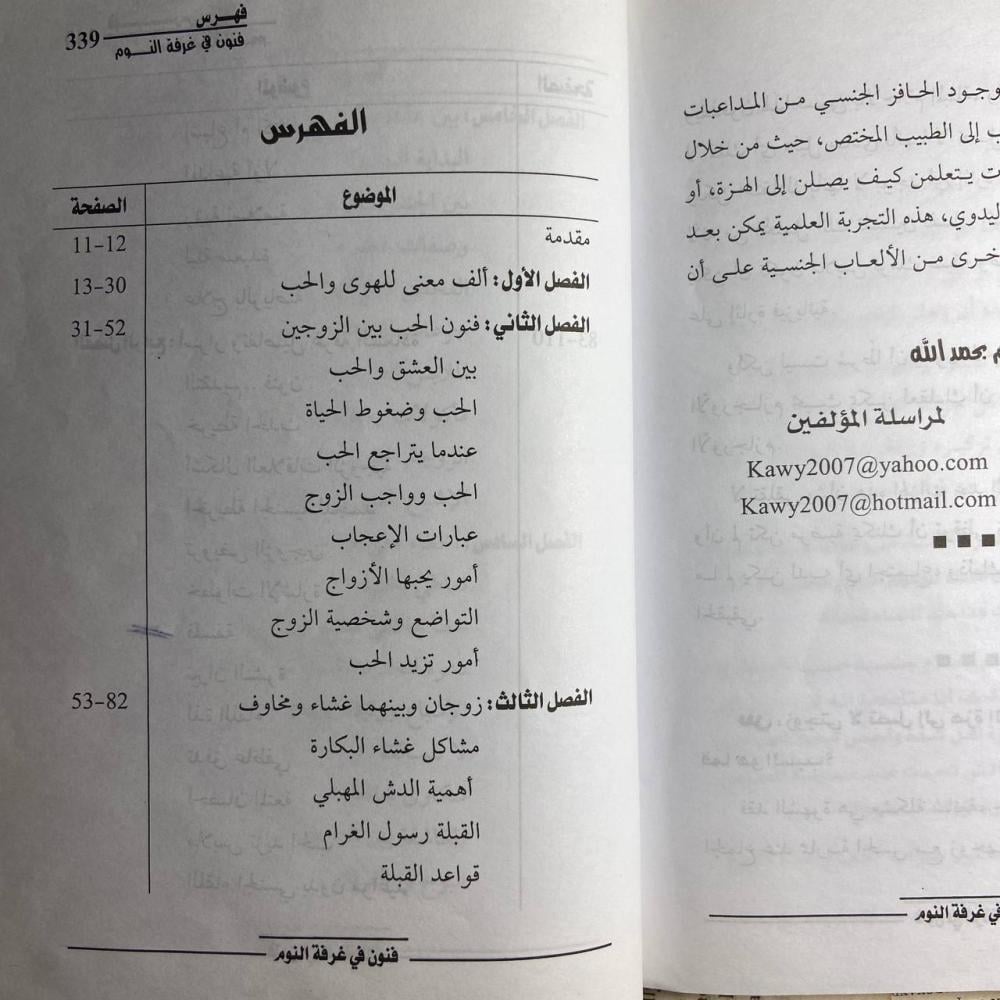 وجود الحافز الجنسي من المداعبات
إلى الطبيب المختص، حيث من خلال
يتعلمن كيف يصلن إلى الهزة، أو
هذه التجربة العلمية يمكن بعد
من الألعاب الجنسية على أن
بحمد الله
لمراسلة المؤلفين
Kawy2007@yahoo.com
Kawy2007@hotmail.com
في غرفة النوم
فهرس
فنون في غرفة النوم
339
الفهرس
الموضوع الصفحة
مقدمة 11-12
الفصل الأول: ألف معنى للهوى والحب 13-30
الفصل الثاني: فنون الحب بين الزوجين 31-52
بين العشق والحب
الحب وضغوط الحياة
عندما يتراجع الحب
الحب وواجب الزوج
عبارات الإعجاب
أمور يحبها الأزواج
التواضع وشخصية الزوج
أمور تزيد الحب
الفصل الثالث: زوجان وبينهما غشاء ومخاوف 53-82
مشاكل غشاء البكارة
أهمية الدش المهبلي
القبلة رسول الغرام
قواعد القبلة
فنون في غرفة النوم